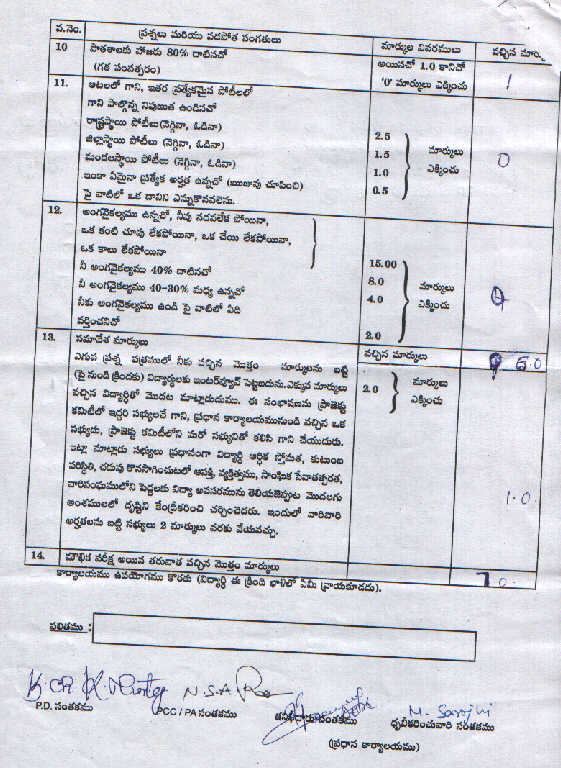 వ.నెం. ప్రశ్నలు మరియు వడపోత సంగతులు మార్కుల వివరములు వచ్చిన మార్కు
10 పాఠశాలకు హాజరు 80% దాటినచో అయినచో 1.0 కానిచో
(గత సంవత్సరం) '0' మార్కులు ఎక్కించు 1
11. ఆటలలో గాని, ఇతర ప్రత్యేకమైన పోటీలలో
గాని పాల్గొన్న నిపుణత ఉండినచో
రాష్ట్రస్థాయి పోటీలు (నెగ్గినా, ఓడినా) 2.5
జిల్లాస్థాయి పోటీలు (నెగ్గినా, ఓడినా) 1.5 మార్కులు 0
మండలస్థాయి పోటీలు (నెగ్గినా, ఓడినా) 1.0 ఎక్కించు
ఇంకా ఏమైనా ప్రత్యేక అర్హత ఉన్నచో (ఋజువు చూపించి) 0.5
పై వాటిలో ఒక దానిని ఎన్నుకొనవలెను.
12. అంగవైకల్యము ఉన్నచో, నీవు నడవలేక పోయినా,
ఒక కంటి చూపు లేకపోయినా, ఒక చేయి లేకపోయినా,
ఒక కాలు లేకపోయినా
నీ అంగవైకల్యము 40% దాటినచో 15.00
నీ అంగవైకల్యము 40-30% మధ్య ఉన్నచో 8.0 మార్కులు
నీకు అంగవైకల్యము ఉండి పై వాటిలో ఏది 4.0 ఎక్కించు
వర్తించనిచో 2.0
13. సమావేశ మార్కులు వచ్చిన మార్కులు 6.0
ఎగువ ప్రశ్న పత్రములో నీకు వచ్చిన మొత్తం మార్కులను బట్టి
(పై నుండి క్రిందకు) విద్యార్థులకు ఇంటర్వ్యూకి పెట్టబడును. ఎక్కువ మార్కులు 2.0 మార్కులు
వచ్చిన విద్యార్థితో మొదట మాట్లాడుదుము. ఈ సంభాషణను ప్రాజెక్టు ఎక్కించు
కమిటీలో ఇద్దరి సభ్యులచే గాని, ప్రధాన కార్యాలయమునుండి వచ్చిన ఒక
సభ్యుడు, ప్రాజెక్టు కమిటీలోని మరో సభ్యునితో కలిసి గాని చేయుదురు.
ఇట్లా మాట్లాడు సభ్యులు ప్రధానంగా విద్యార్థి ఆర్థిక స్తోమత, కుటుంబ
పరిస్థితి, చదువు కొనసాగించుటలో ఆసక్తి, వ్యక్తిత్వము, సాంఘిక సేవాతత్పరత,
వారిసంఘములోని పెద్దలకు విద్యా అవసరమును తెలియజెప్పుట మొదలగు
అంశములలో దృష్టిని కేంద్రీకరించి చర్చించెదరు. ఇందులో వారివారి 1.0
అర్హతలను బట్టి సభ్యులు 2 మార్కులు వరకు వేయవచ్చు.
14. మౌఖిక పరీక్ష అయిన తరువాత వచ్చిన మొత్తం మార్కులు 7.0
కార్యాలయము ఉపయోగము కొరకు (విద్యార్థి ఈ క్రింది భాగంలో ఏమీ వ్రాయకూడదు).
ఫలితము :
N.S.A M. Saroj
P.D. సంతకము PCC / PA సంతకము సంతకము ధృవీకరించువారి సంతకము
(ప్రధాన కార్యాలయము)